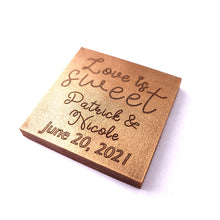 Love is
sweet
Patrick &
Nicole
June 20, 2021